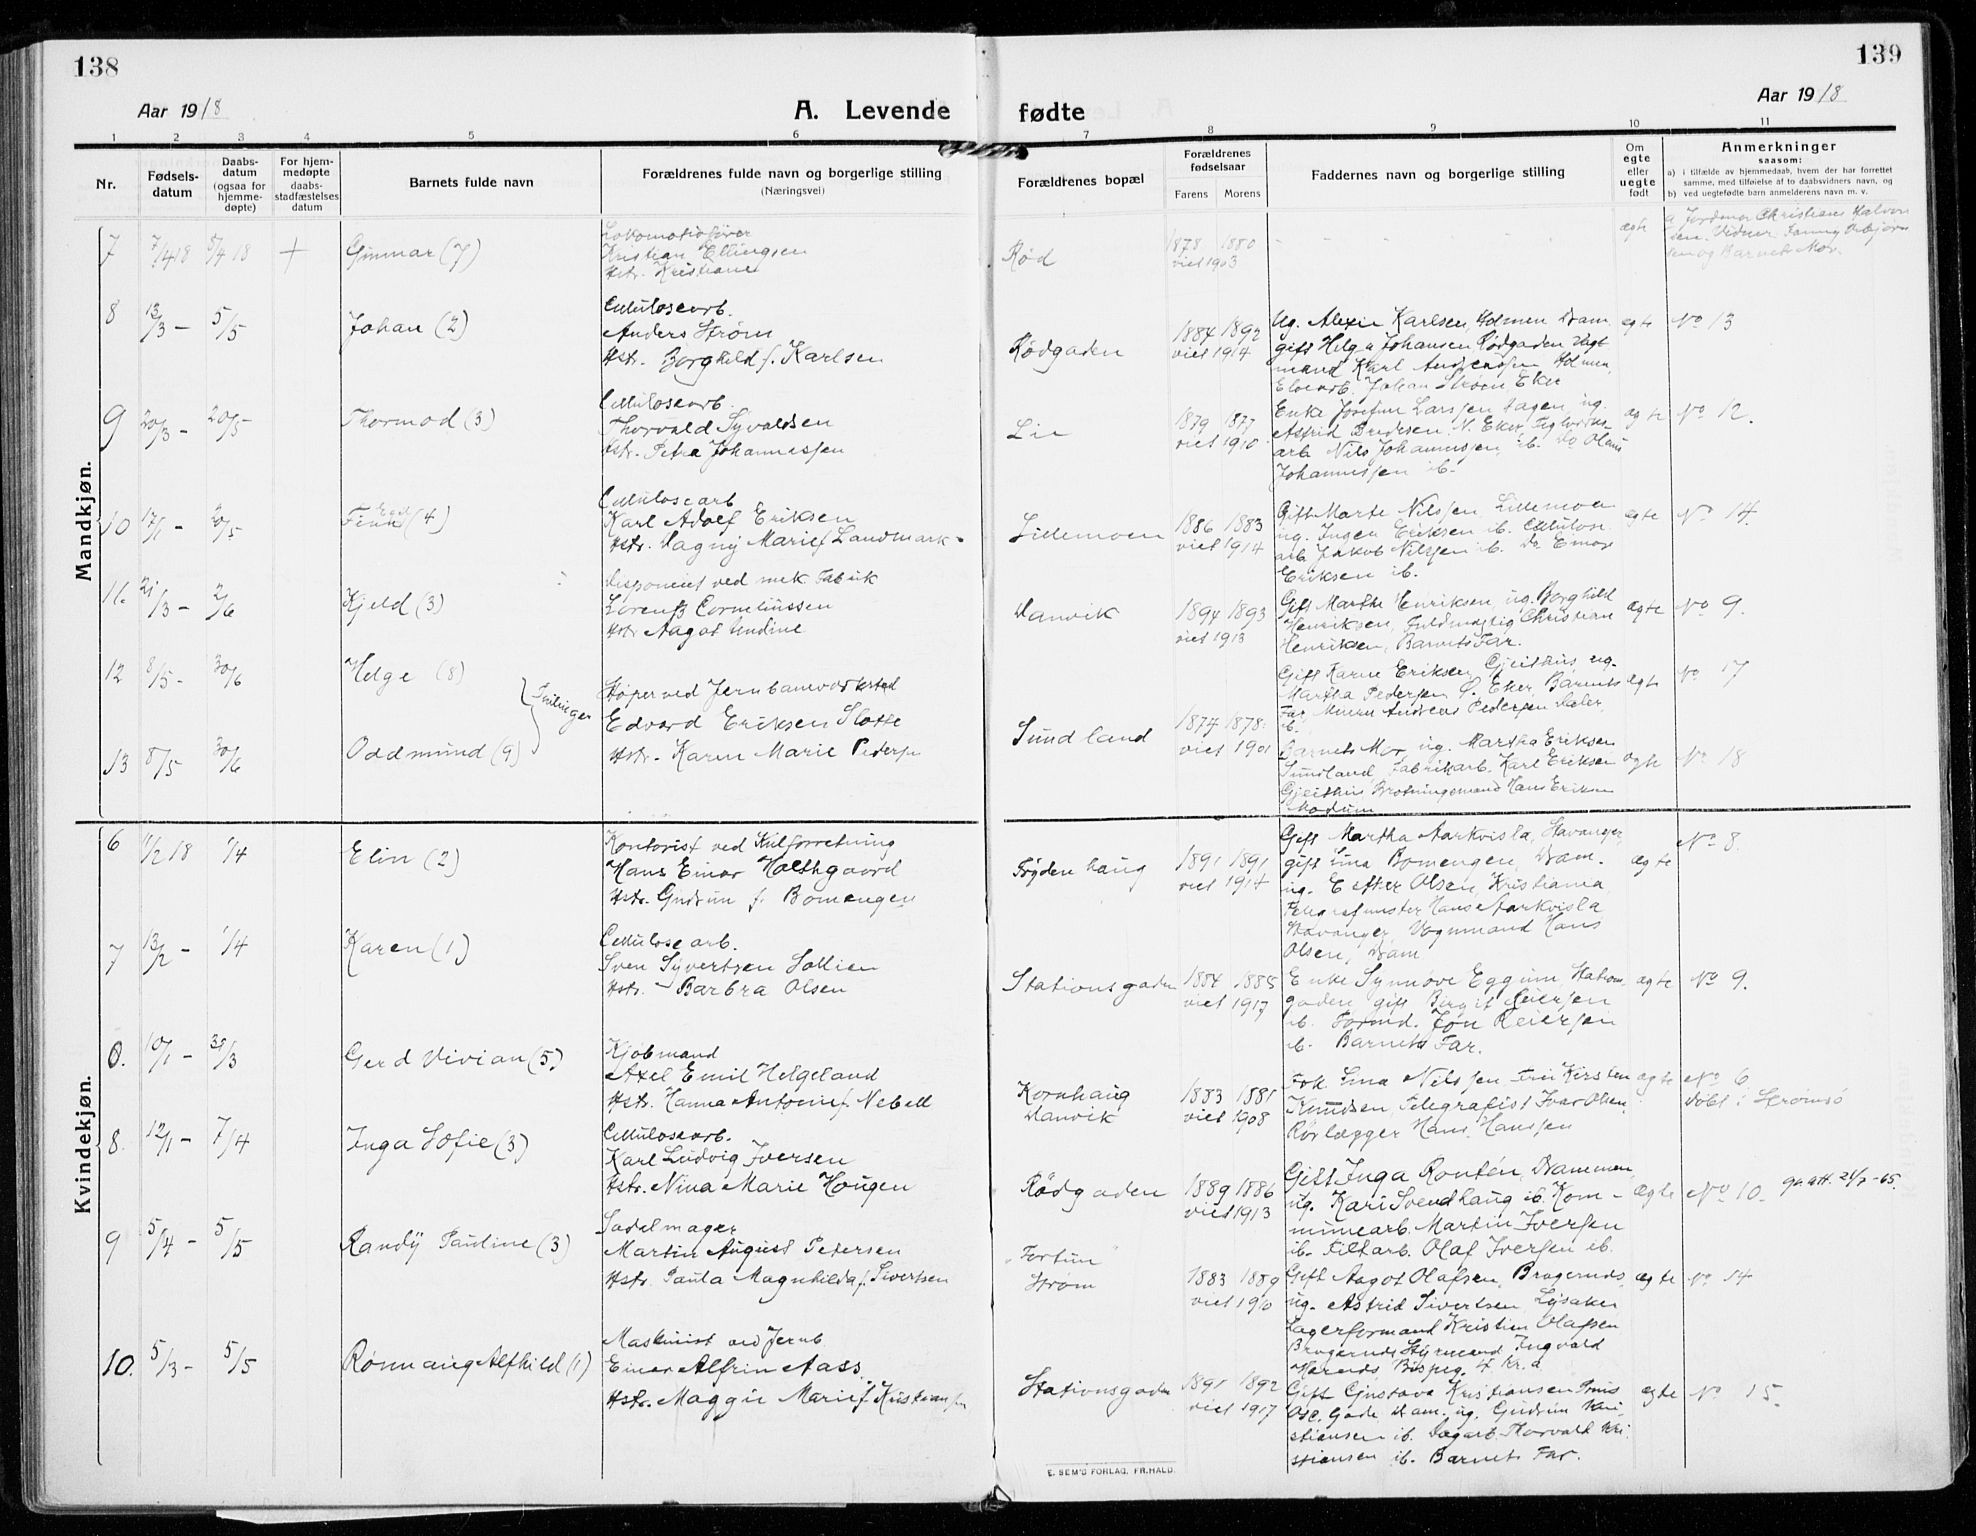 138
139
Aar 1918
A. Levende fødte
Aar 1918
1 2 3 4 5 6 7 8 9 10 11
Nr.
Fødsels-
datum
Daabs-
datum
(ogsaa for
hjemme-
døpte)
For hjem-
medøpte
daabs-
stadfæstelses
datum
Barnets fulde navn
Forældrenes fulde navn og borgerlige stilling
(Næringsvei)
Forældrenes bopæl
Forældrenes
fødselsaar
Farens Morens
Faddernes navn og borgerlige stilling
Om
egte
eller
uegte
født
Anmerkninger
saasom:
a) i tilfælde av hjemmedaab, hvem der har forrettet
samme, med tilføielse af to daabsvidners navn, og
b) ved uegtefødte barn anmelderens navn m. v.
Mandkjøn.
7 7/4 18 5/4 18 + Gunnar (7)
Kristian Ellingsen
Hstr. Kristiane
Rød
1878 1880
viet 1903
ægte
Barnets Mor.
8 13/3 – 5/5 Johan (2)
Celluloseorb.
Anders Strøm
Hstr. Borghild f. Karlsen
Rødgaden
1884 1892
viet 1914
Ug. Alexie Karlsen, Holmen Dram.
gift Helga Johansen Rødgaden Vegt
mand Karl Andersen Holmen,
Johan Strøm Eker
egte No 13
9 20/3 – 20/5 Thormod (3)
Celluloseorb.
Thorvald Syvaldsen
Hstr. Petra Johannessen
Lie
1879 1877
viet 1910
Enke Josefine Larssen Hagen, ug.
Astrid Bredesen, N. Eker,
arb. Nils Johannessen ib. Do Olaus
Johannessen ib.
ægte No 12.
10 17/1 – 20/5 Finn (4)
Celluloseorb
Karl Adolf Eriksen
Hstr. Dagny Marie f. Landmark
Lillemoen
1886 1883
viet 1914
Gift Marte Nilssen Lillemoen
ug. Inga Eriksen ib. Cellulose
arb. Jakob Nilssen ib. Do Einar
Eriksen ib.
egte No 14.
11. 21/3 – 2/6 Kjeld (3)
Disponent ved mek. Fabrik
Lorentz Corneliussen
Hstr. Aagot Undine
Danvik
1894 1893
viet 1913
Gift Marthe Henriksen, ug. Borghild
Henriksen, Fuldmægtig Christian
Henriksen, Barnets Far.
ægte No 9.
12 8/5 – 30/6 Helge (8)
Tvilinger
13 8/5 30/6 Oddmund (9)
Støper ved Jernbaneverksted
Edvard Eriksen Slotte
Hstr. Karen Marie Peders
Sundland
1874 1878
viet 1901
Gift Karen Eriksen, Gjeithus ug.
Martha Pedersen Ø. Eker, Barnets
Far, Murer Andreas Pedersen
ib.
ægte No 17
Barnets Mor, ug. Martha Eriksen
Sundland, Fabrikarb. Karl Eriksen
Gjeithus Hans Eriksen
Modum
ægte No 18
Kvindekjøn.
6 11/2 18 1/4 Elin (2)
Kontorist ved Kulforretning
Hans Einar Holthgaard
Hstr. Gudrun f. Bomengen
Frydenhaug
1891 1891
viet 1914
Gift Martha Aarkvisla, Stavanger,
gift Lina Bomengen, Dram.
ug. Esther Olsen, Kristiania
Hans Aarkvisla
Stavanger, Vognmand Hans
Olsen, Dram
ægte No 8.
7 13/2 – 1/4 Karen (1)
Cellulosearb.
Sven Syvertsen Sollien
Hstr. – Barbra Olsen
Stationsgaden
1884 1885
viet 1917
Enke Synnøve Eggum, Station
gaden, gift Birgit Reiersen
ib. Formd. Jon Reiersen
ib. Barnets Far.
ægte No 9.
10/1 – 31/3 Gerd Vivian (5)
Kjøbmand
Axel Emil Helgeland
Hstr. Hanna Antonie f. Nebell
Kornhaug
Danvik
1883 1881
viet 1908
Frk Lina Nilssen Fru Kirsten
Knudsen, Telegrafist Ivar Olsen
Rørlægger Hans Hanssen
ægte No 6
døbt i Strømsø
8. 12/1 – 7/4 Inga Sofie (3)
Celluloseorb.
Karl Ludvig Iversen
Hstr. Nina Marie Haugen
Rødgaden
1889 1886
viet 1913
Gift Inga Rontén, Drammen,
ug. Kari Svendhaug ib. Kom-
munearb. Martin Iversen
ib. Filtarb. Olaf Iversen ib.
ægte No 10. 24/2-65.
9 5/4 – 5/5 Randy Pauline (3)
Sadelmager
Martin August Petersen
Hstr. Paula Magnhilda f. Sivertsen
"Fortun"
Strøm
1883 1889
viet 1910
Gift Aagot Olafsen, Bragernds,
ug. Astrid Sivertsen, Lysaker
Lagerformand Kristian Olafsen
Bragernds Styrmand Ingvald
Bispeg. 4 Kr.a
ægte No 14
10. 5/3 – 5/5 Rønnaug Alfhild (1)
Maskinist ved Jernb
Einar Alfrin Aass
Hstr. Maggie Marie f. Kristiansen
Stationsgaden
1891 1892
viet 1917
Gift Gustava Kristiansen Prins
Osc. Gade Dram. ug. Gudrun Kri-
stiansen ib. Dagarb. Thorvald Kri-
stiansen ib. Barnets Far.
ægte No 15.
E. SEM'S FORLAG, FR.HALD.